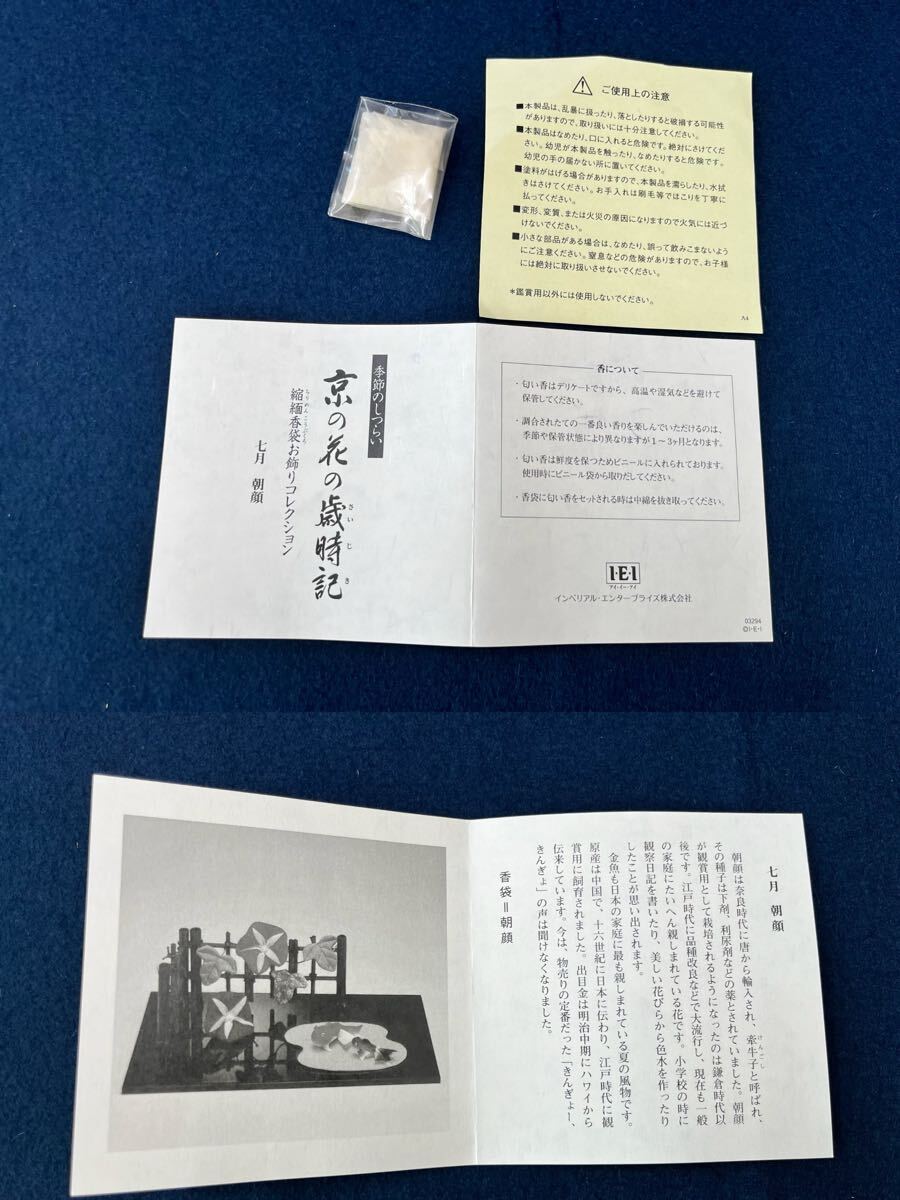 ご使用上の注意
■本製品は、乱暴に扱ったり、落としたりすると破損する可能性
がありますので、取り扱いには十分注意してください。
■本製品はなめたり、口に入れると危険です。絶対にさけてくだ
さい。幼児が本製品を触ったり、なめたりすると危険です。
幼児の手の届かない所に置いてください。
■塗料がはげる場合がありますので、本製品を濡らしたり、水拭
きはさけてください。お手入れは刷毛等でほこりを丁寧に
払ってください。
■変形、変質、または火災の原因になりますので火気には近づ
けないでください。
■小さな部品がある場合は、なめたり、誤って飲みこまないよう
にご注意ください。窒息などの危険がありますので、お子様
には絶対に取り扱いさせないでください。
＊鑑賞用以外には使用しないでください。
A4
季節のしつらい
京の花の歳時記
さいじき
縮緬香袋お飾りコレクション
ちりめんこうぶくろ
七月 朝顔
香について
・匂い香はデリケートですから、高温や湿気などを避けて
保管してください。
・調合されたての一番良い香りを楽しんでいただけるのは、
季節や保管状態により異なりますが1〜3ヶ月となります。
・匂い香は鮮度を保つためビニールに入れられております。
使用時にビニール袋から取りだしてください。
・香袋に匂い香をセットされる時は中綿を抜き取ってください。
I·E·I
アイ・イー・アイ
インペリアル・エンタープライズ株式会社
03294
©I・E・I
七月 朝顔
朝顔は奈良時代に唐から輸入され、牽牛子と呼ばれ、
けんごし
その種子は下剤、利尿剤などの薬とされていました。朝顔
が観賞用として栽培されるようになったのは鎌倉時代以
後です。江戸時代に品種改良などで大流行し、現在も一般
の家庭にたいへん親しまれている花です。小学校の時に
観察日記を書いたり、美しい花びらから色水を作ったり
したことが思い出されます。
金魚も日本の家庭に最も親しまれている夏の風物です。
原産は中国で、十六世紀に日本に伝わり、江戸時代に観
賞用に飼育されました。出目金は明治中期にハワイから
伝来しています。今は、物売りの定番だった「きんぎょー、
きんぎょ」の声は聞けなくなりました。
香袋＝朝顔